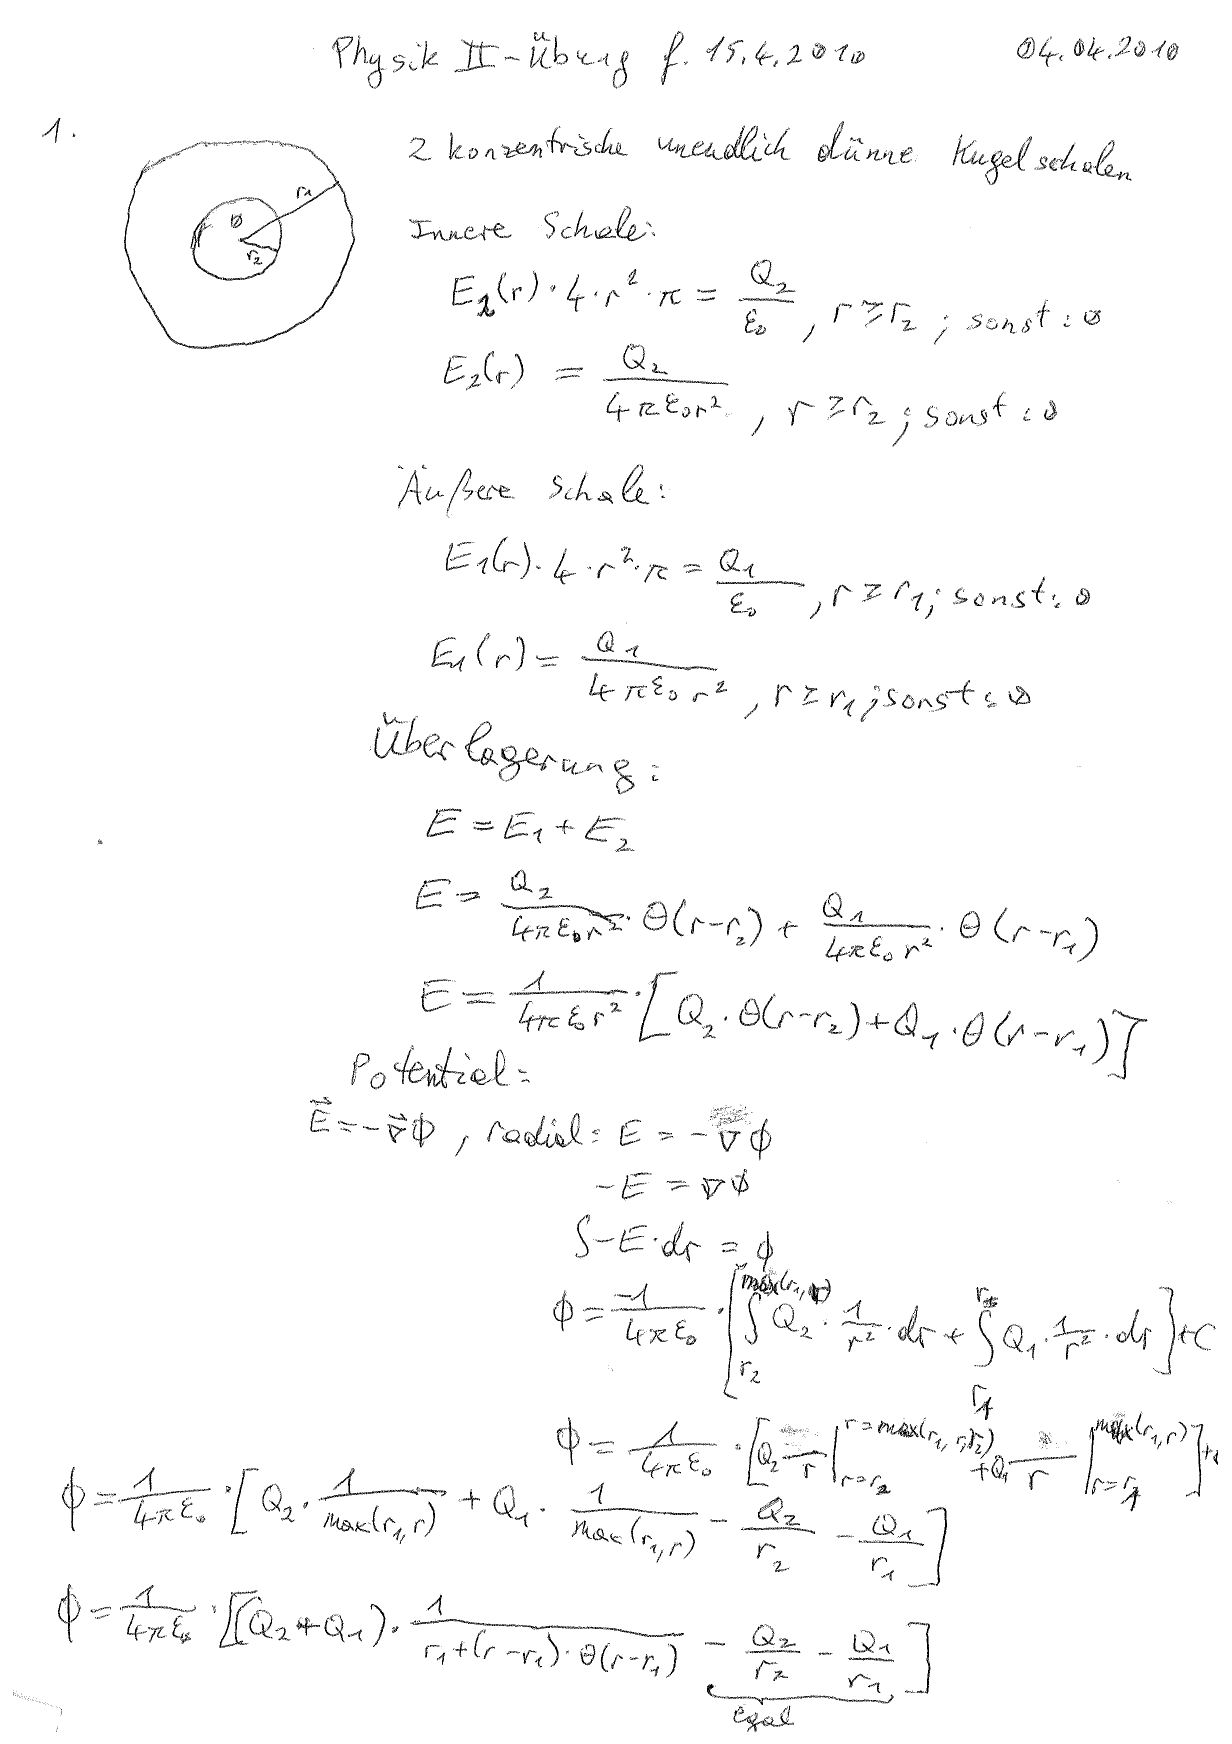 Physik II - Übung f. 15.4.2010 04.04.2010
1.
r₁
r₂
2 konzentrische unendlich dünne Kugelschalen
Innere Schale:
E₂(r)·4·r²·π = Q₂/ε₀, r ≥ r₂; sonst: 0
E₂(r) = Q₂/(4πε₀r²), r ≥ r₂; sonst: 0
Äußere Schale:
E₁(r)·4·r²·π = Q₁/ε₀, r ≥ r₁; sonst: 0
E₁(r) = Q₁/(4πε₀r²), r ≥ r₁; sonst: 0
Überlagerung:
E = E₁ + E₂
E = Q₂/(4πε₀r²)·Θ(r-r₂) + Q₁/(4πε₀r²)·Θ(r-r₁)
E = 1/(4πε₀r²)·[Q₂·Θ(r-r₂) + Q₁·Θ(r-r₁)]
Potential:
E⃗ = -∇⃗ϕ, radial: E = -∇ϕ
-E = ∇ϕ
∫-E·dr = ϕ
ϕ = -1/(4πε₀)·[∫ Q₂·1/r²·dr + ∫ Q₁·1/r²·dr] + C
ϕ = 1/(4πε₀)·[Q₂ /r | r=r₂ + Q₁ /r | max(r₁,r) r=r₁]
ϕ = 1/(4πε₀)·[Q₂·1/max(r₁,r) + Q₁·1/max(r₁,r) - Q₂/r₂ - Q₁/r₁]
ϕ = 1/(4πε₀)·[(Q₂+Q₁)·1/(r₁+(r-r₁)·Θ(r-r₁)) - Q₂/r₂ - Q₁/r₁]
egal